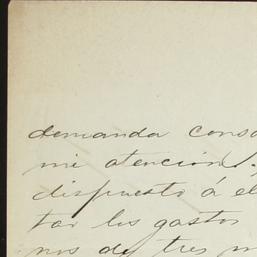 demanda
mi atención.
dispuesto á el
tar los gastos
nos de tres m